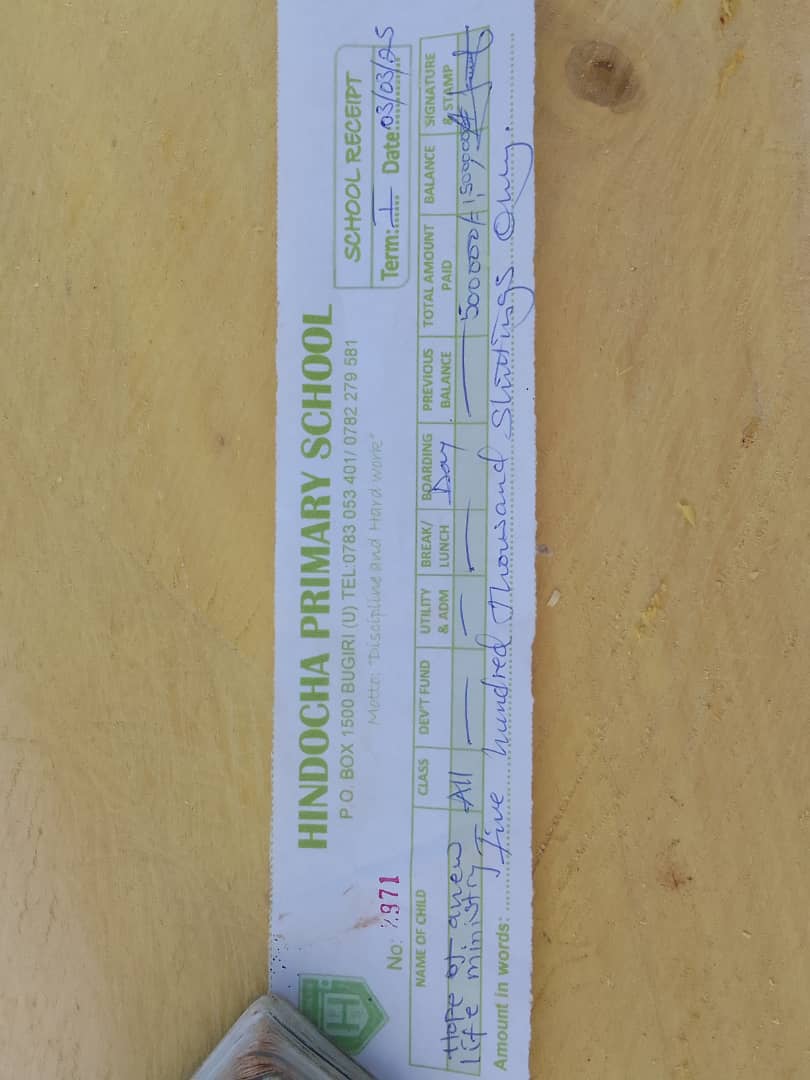 HINDOCHA PRIMARY SCHOOL
P.O. BOX 1500 BUGIRI (U) TEL:0783 053 401/ 0782 279 581
Motto: "Discipline and Hard work"
H
SCHOOL RECEIPT
No: 2971
Term: I Date: 03/03/25
NAME OF CHILD CLASS DEV'T FUND UTILITY & ADM BREAK/ LUNCH BOARDING PREVIOUS BALANCE TOTAL AMOUNT PAID BALANCE SIGNATURE & STAMP
Hope of anew All — — — Day — 500000/=
life ministry
Amount in words: Five hundred Thousand Shillings Only.